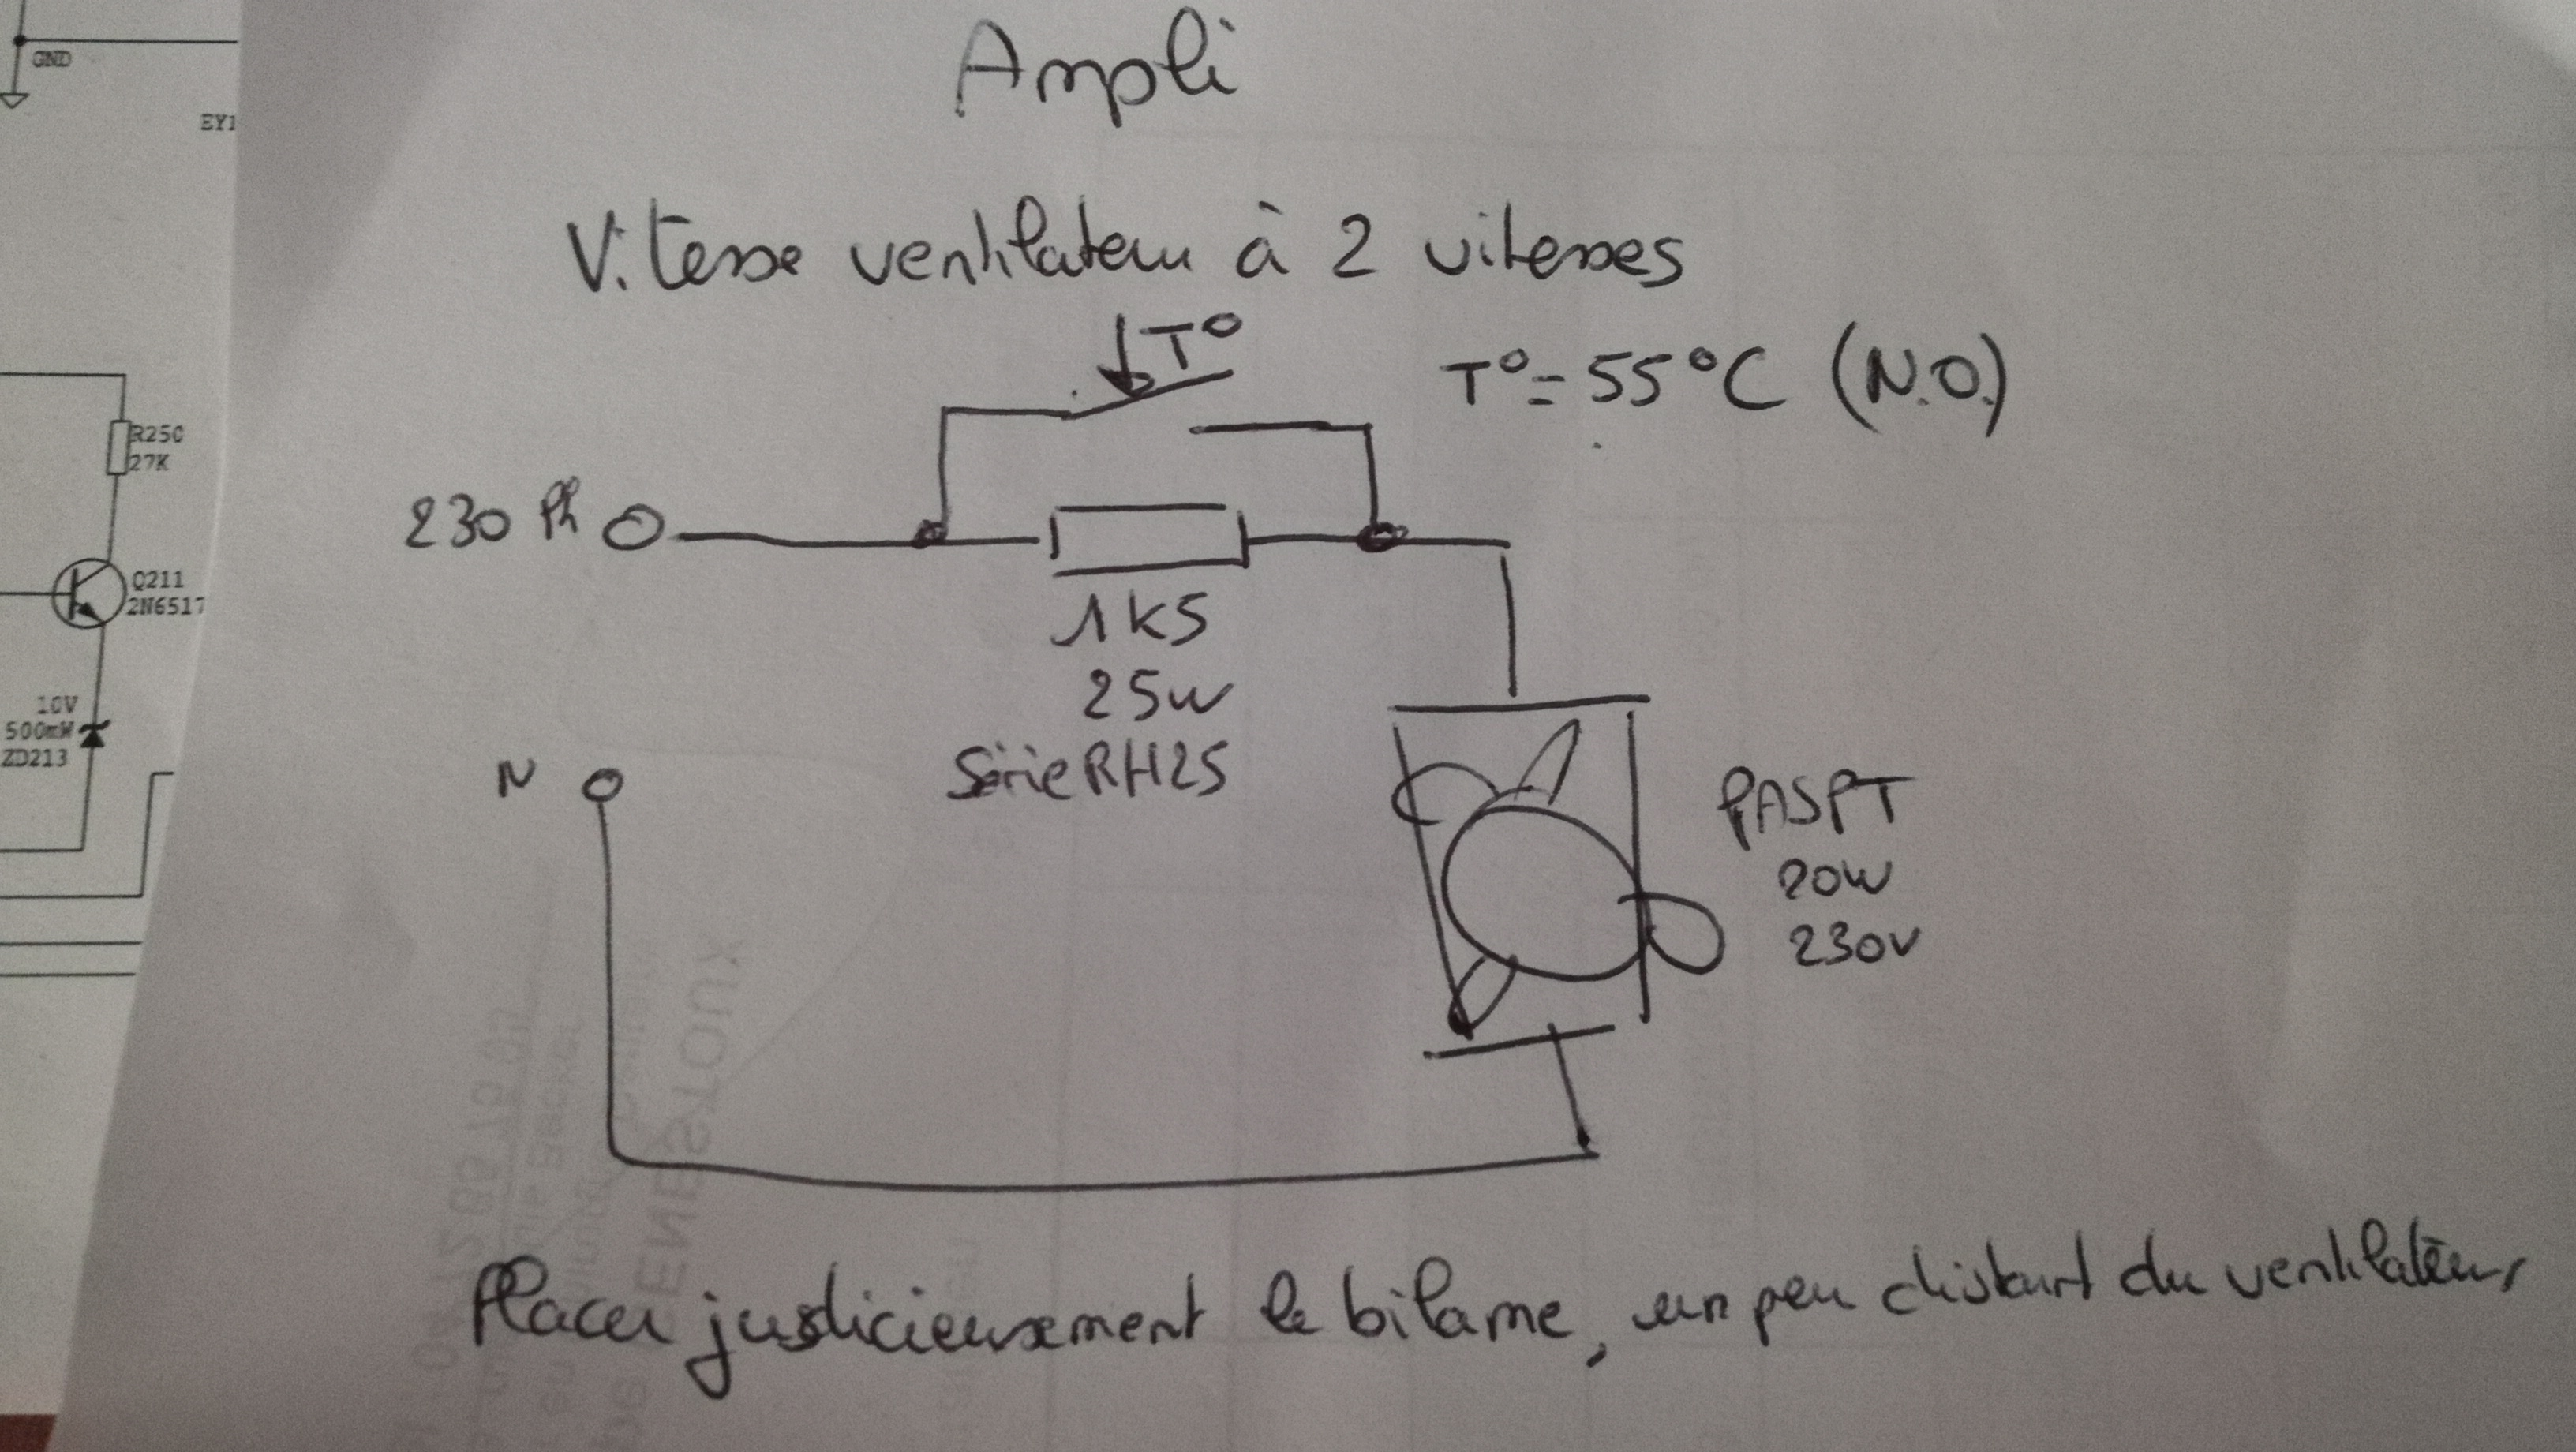 GND
EY1
R250
27K
Q211
2N6517
10V
500mW
ZD213
Ampli
Vitesse ventilateur à 2 vitesses
T°
T°= 55°C (N.O.)
230 Ph
1k5
25W
Série RH25
N
PASPT
20W
230V
Placer judicieusement le bilame, un peu distant du ventilateur